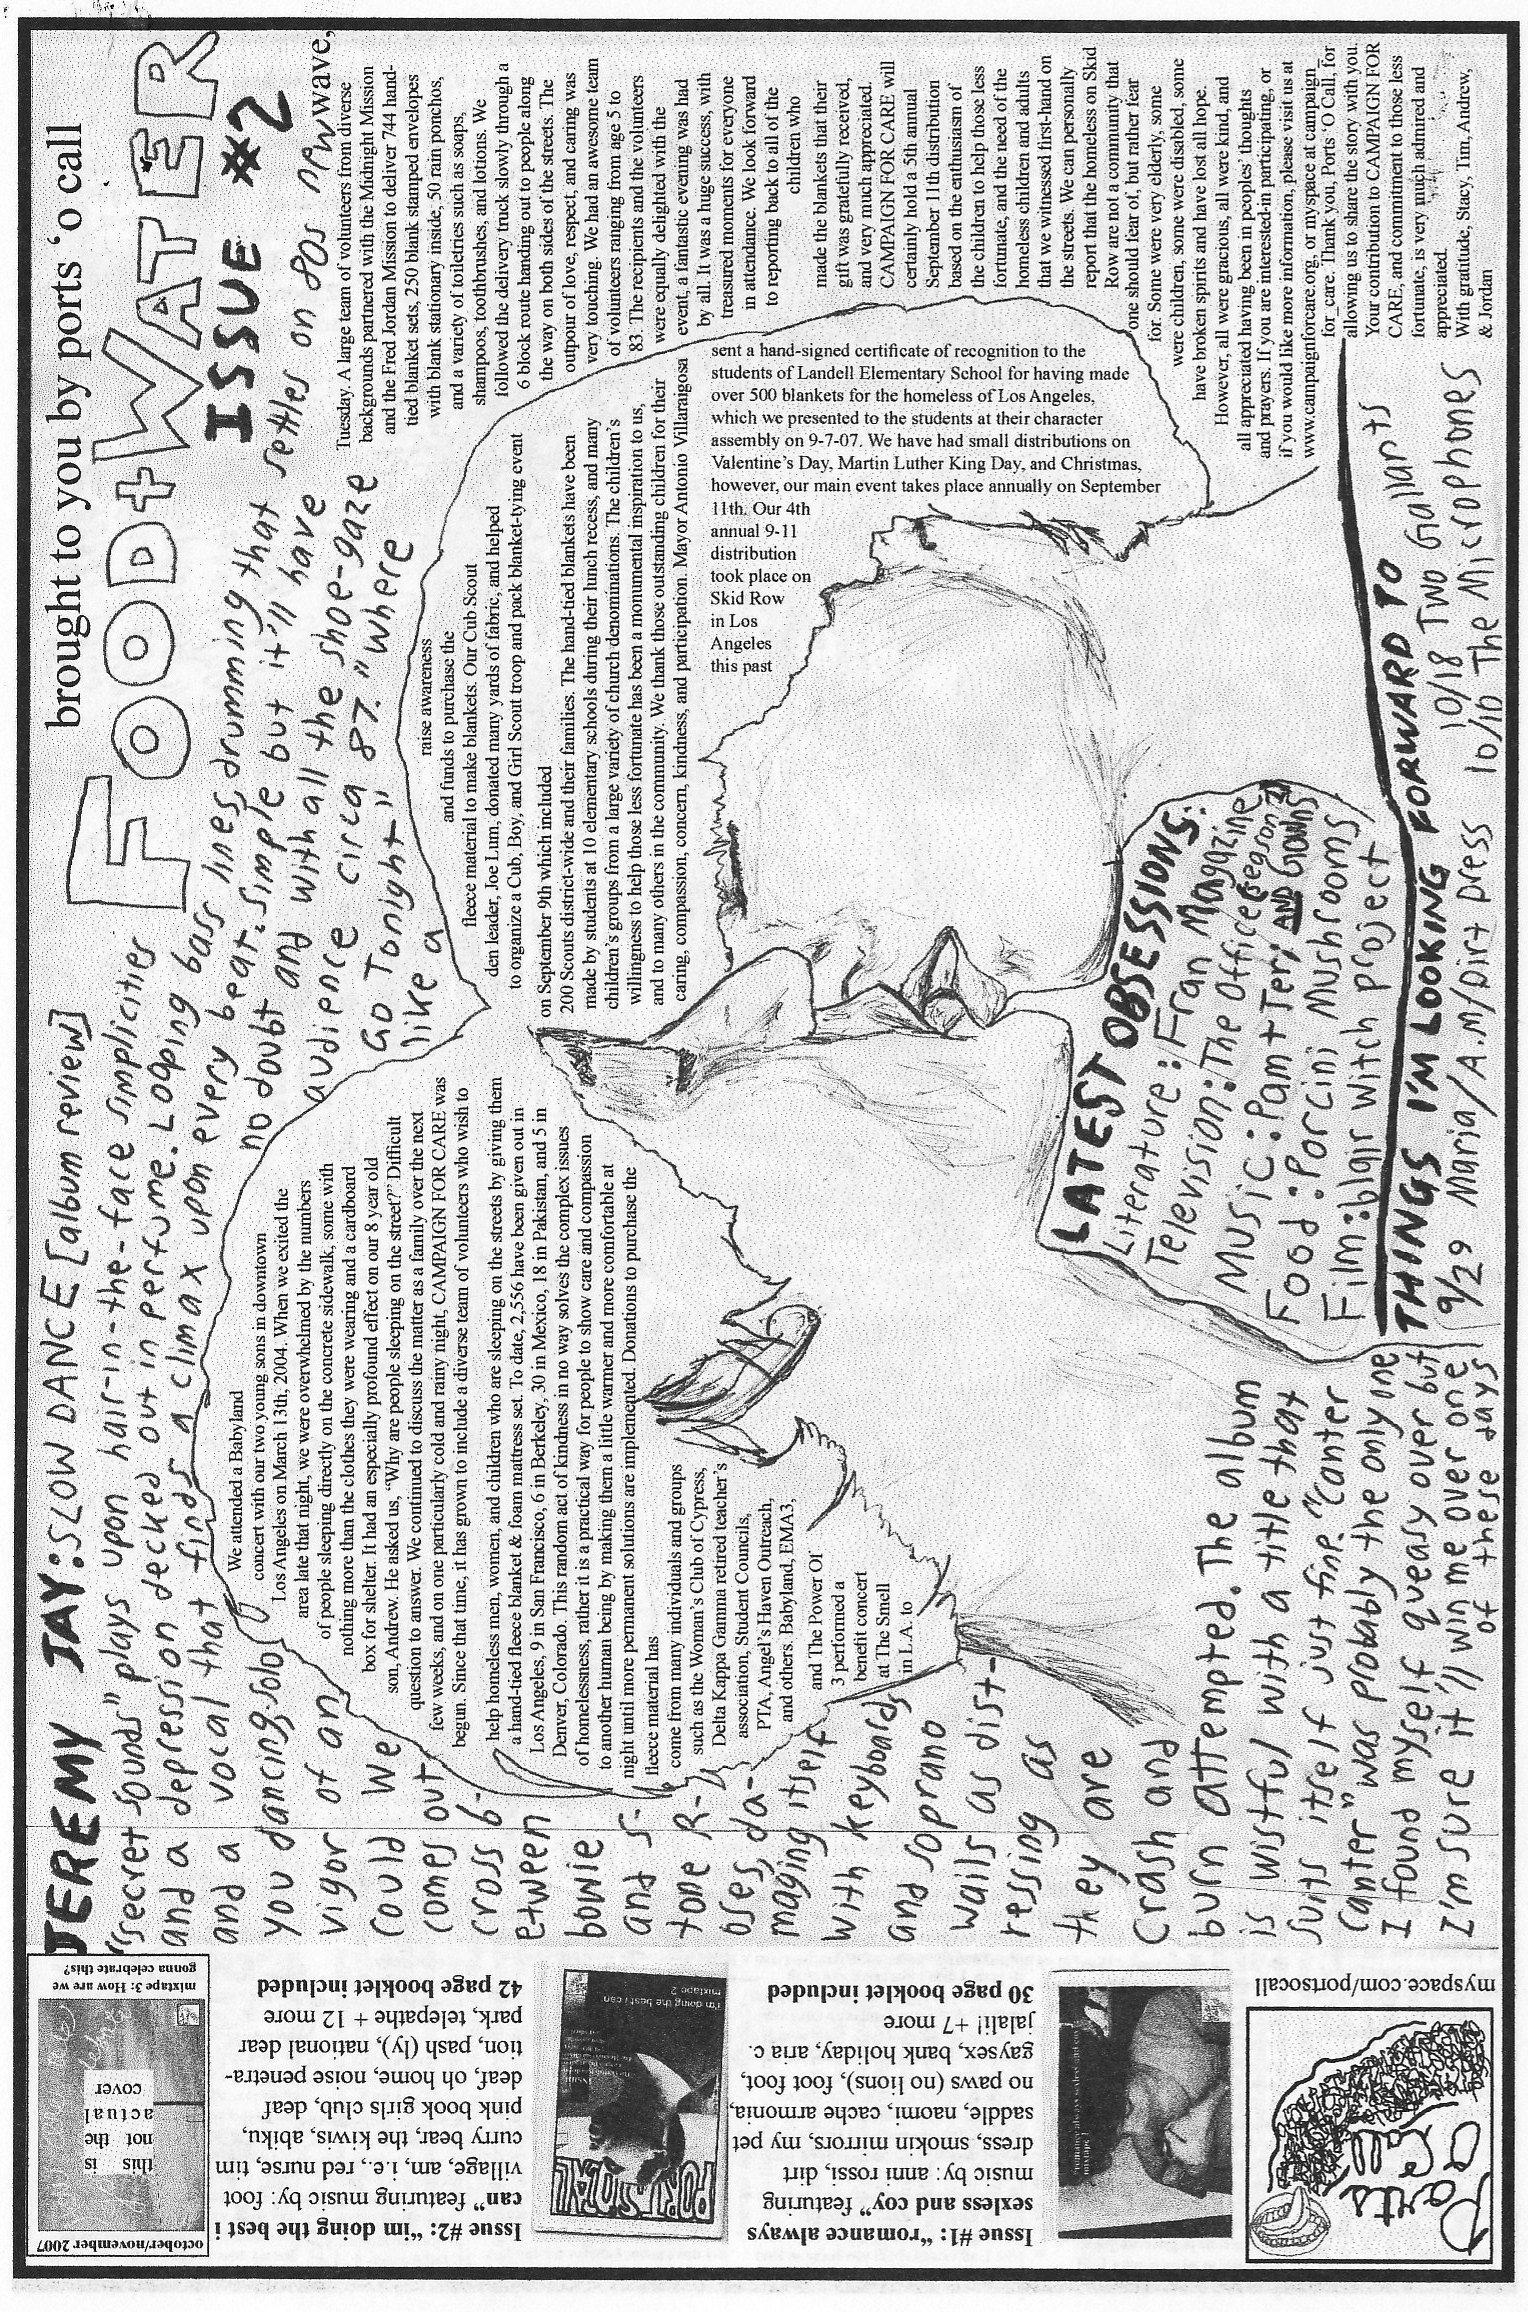 brought to you by ports ‘o call
FOOD+WATER
ISSUE #2
JEREMY JAY: SLOW DANCE [album review]
"secret sounds" plays upon hair-in-the-face simplicities
and a depression decked out in perfume. Looping bass lines, drumming that settles on 80s new wave,
and a vocal that finds a climax upon every beat. simple but it'll have
you dancing-solo no doubt and with all the shoe-gaze
vigor of an audience circa 87. "where
could We Go Tonight"
comes out like a
cross b-
etween
bowie
and s-
tone R-
oses, da-
maging itself
with keyboards
and soprano
wails as dist-
ressing as
they are
Crash and
burn attempted. The album
is wistful with a title that
suits itself just fine. "Canter
Canter" was probably the only one
I found myself queasy over but
I'm sure it'll win me over one
of these days!
We attended a Babyland
concert with our two young sons in downtown
Los Angeles on March 13th, 2004. When we exited the
area late that night, we were overwhelmed by the numbers
of people sleeping directly on the concrete sidewalk, some with
nothing more than the clothes they were wearing and a cardboard
box for shelter. It had an especially profound effect on our 8 year old
son, Andrew. He asked us, “Why are people sleeping on the street?” Difficult
question to answer. We continued to discuss the matter as a family over the next
few weeks, and on one particularly cold and rainy night, CAMPAIGN FOR CARE was
begun. Since that time, it has grown to include a diverse team of volunteers who wish to
help homeless men, women, and children who are sleeping on the streets by giving them
a hand-tied fleece blanket & foam mattress set. To date, 2,556 have been given out in
Los Angeles, 9 in San Francisco, 6 in Berkeley, 30 in Mexico, 18 in Pakistan, and 5 in
Denver, Colorado. This random act of kindness in no way solves the complex issues
of homelessness, rather it is a practical way for people to show care and compassion
to another human being by making them a little warmer and more comfortable at
night until more permanent solutions are implemented. Donations to purchase the
fleece material has
come from many individuals and groups
such as the Woman’s Club of Cypress,
Delta Kappa Gamma retired teacher’s
association, Student Councils,
PTA, Angel’s Haven Outreach,
and others. Babyland, EMA3,
and The Power Of
3 performed a
benefit concert
at The Smell
in L.A. to
raise awareness
and funds to purchase the
fleece material to make blankets. Our Cub Scout
den leader, Joe Lum, donated many yards of fabric, and helped
to organize a Cub, Boy, and Girl Scout troop and pack blanket-tying event
on September 9th which included
200 Scouts district-wide and their families. The hand-tied blankets have been
made by students at 10 elementary schools during their lunch recess, and many
children’s groups from a large variety of church denominations. The children’s
willingness to help those less fortunate has been a monumental inspiration to us,
and to many others in the community. We thank those outstanding children for their
caring, compassion, concern, kindness, and participation. Mayor Antonio Villaraigosa
sent a hand-signed certificate of recognition to the
students of Landell Elementary School for having made
over 500 blankets for the homeless of Los Angeles,
which we presented to the students at their character
assembly on 9-7-07. We have had small distributions on
Valentine’s Day, Martin Luther King Day, and Christmas,
however, our main event takes place annually on September
11th. Our 4th
annual 9-11
distribution
took place on
Skid Row
in Los
Angeles
this past
Tuesday. A large team of volunteers from diverse
backgrounds partnered with the Midnight Mission
and the Fred Jordan Mission to deliver 744 hand-
tied blanket sets, 250 blank stamped envelopes
with blank stationary inside, 50 rain ponchos,
and a variety of toiletries such as soaps,
shampoos, toothbrushes, and lotions. We
followed the delivery truck slowly through a
6 block route handing out to people along
the way on both sides of the streets. The
outpour of love, respect, and caring was
very touching. We had an awesome team
of volunteers ranging from age 5 to
83. The recipients and the volunteers
were equally delighted with the
event, a fantastic evening was had
by all. It was a huge success, with
treasured moments for everyone
in attendance. We look forward
to reporting back to all of the
children who
made the blankets that their
gift was gratefully received,
and very much appreciated.
CAMPAIGN FOR CARE will
certainly hold a 5th annual
September 11th distribution
based on the enthusiasm of
the children to help those less
fortunate, and the need of the
homeless children and adults
that we witnessed first-hand on
the streets. We can personally
report that the homeless on Skid
Row are not a community that
one should fear of, but rather fear
for. Some were very elderly, some
were children, some were disabled, some
have broken spirits and have lost all hope.
However, all were gracious, all were kind, and
all appreciated having been in peoples’ thoughts
and prayers. If you are interested in participating, or
if you would like more information, please visit us at
www.campaignforcare.org, or myspace at campaign_
for_care. Thank you, Ports ‘O Call, for
allowing us to share the story with you.
Your contribution to CAMPAIGN FOR
CARE, and commitment to those less
fortunate, is very much admired and
appreciated.
With gratitude, Stacey, Tim, Andrew,
& Jordan
LATEST OBSESSIONS:
Literature: Fran Magazine
Television: The Office (season 2)
Music: Pam + Teri AND Gowns
Food: Porcini Mushrooms
Film: blair witch project
THINGS I'M LOOKING FORWARD TO
9/29 Maria/A.M/Dirt Dress 10/18 Two Gallants
10/10 The Microphones
october/november 2007
this is
not the
actual
cover
mixtape 3: How are we
gonna celebrate this?
Issue #2: “im doing the best i
can” featuring music by: foot
village, am, i.e., red nurse, tim
curry bear, the kiwis, abiku,
pink book girls club, deaf
deaf, oh home, noise penetra-
tion, pash (ly), national dear
park, telepathe + 12 more
42 page booklet included
PORTS O'CALL
i'm doing the best i can
mixtape 2
Issue #1: “romance always
sexless and coy” featuring
music by: anni rossi, dirt
dress, smokin mirrors, my pet
saddle, naomi, cache armonia,
no paws (no lions), foot foot,
gaysex, bank holiday, aria c.
jalali! +7 more
30 page booklet included
Ports
o'call
myspace.com/portsocall